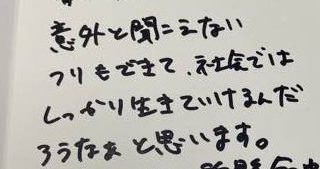 意外と聞こえない
フリもできて、社会では
しっかり生きていけるんだ
ろうなぁと思います。